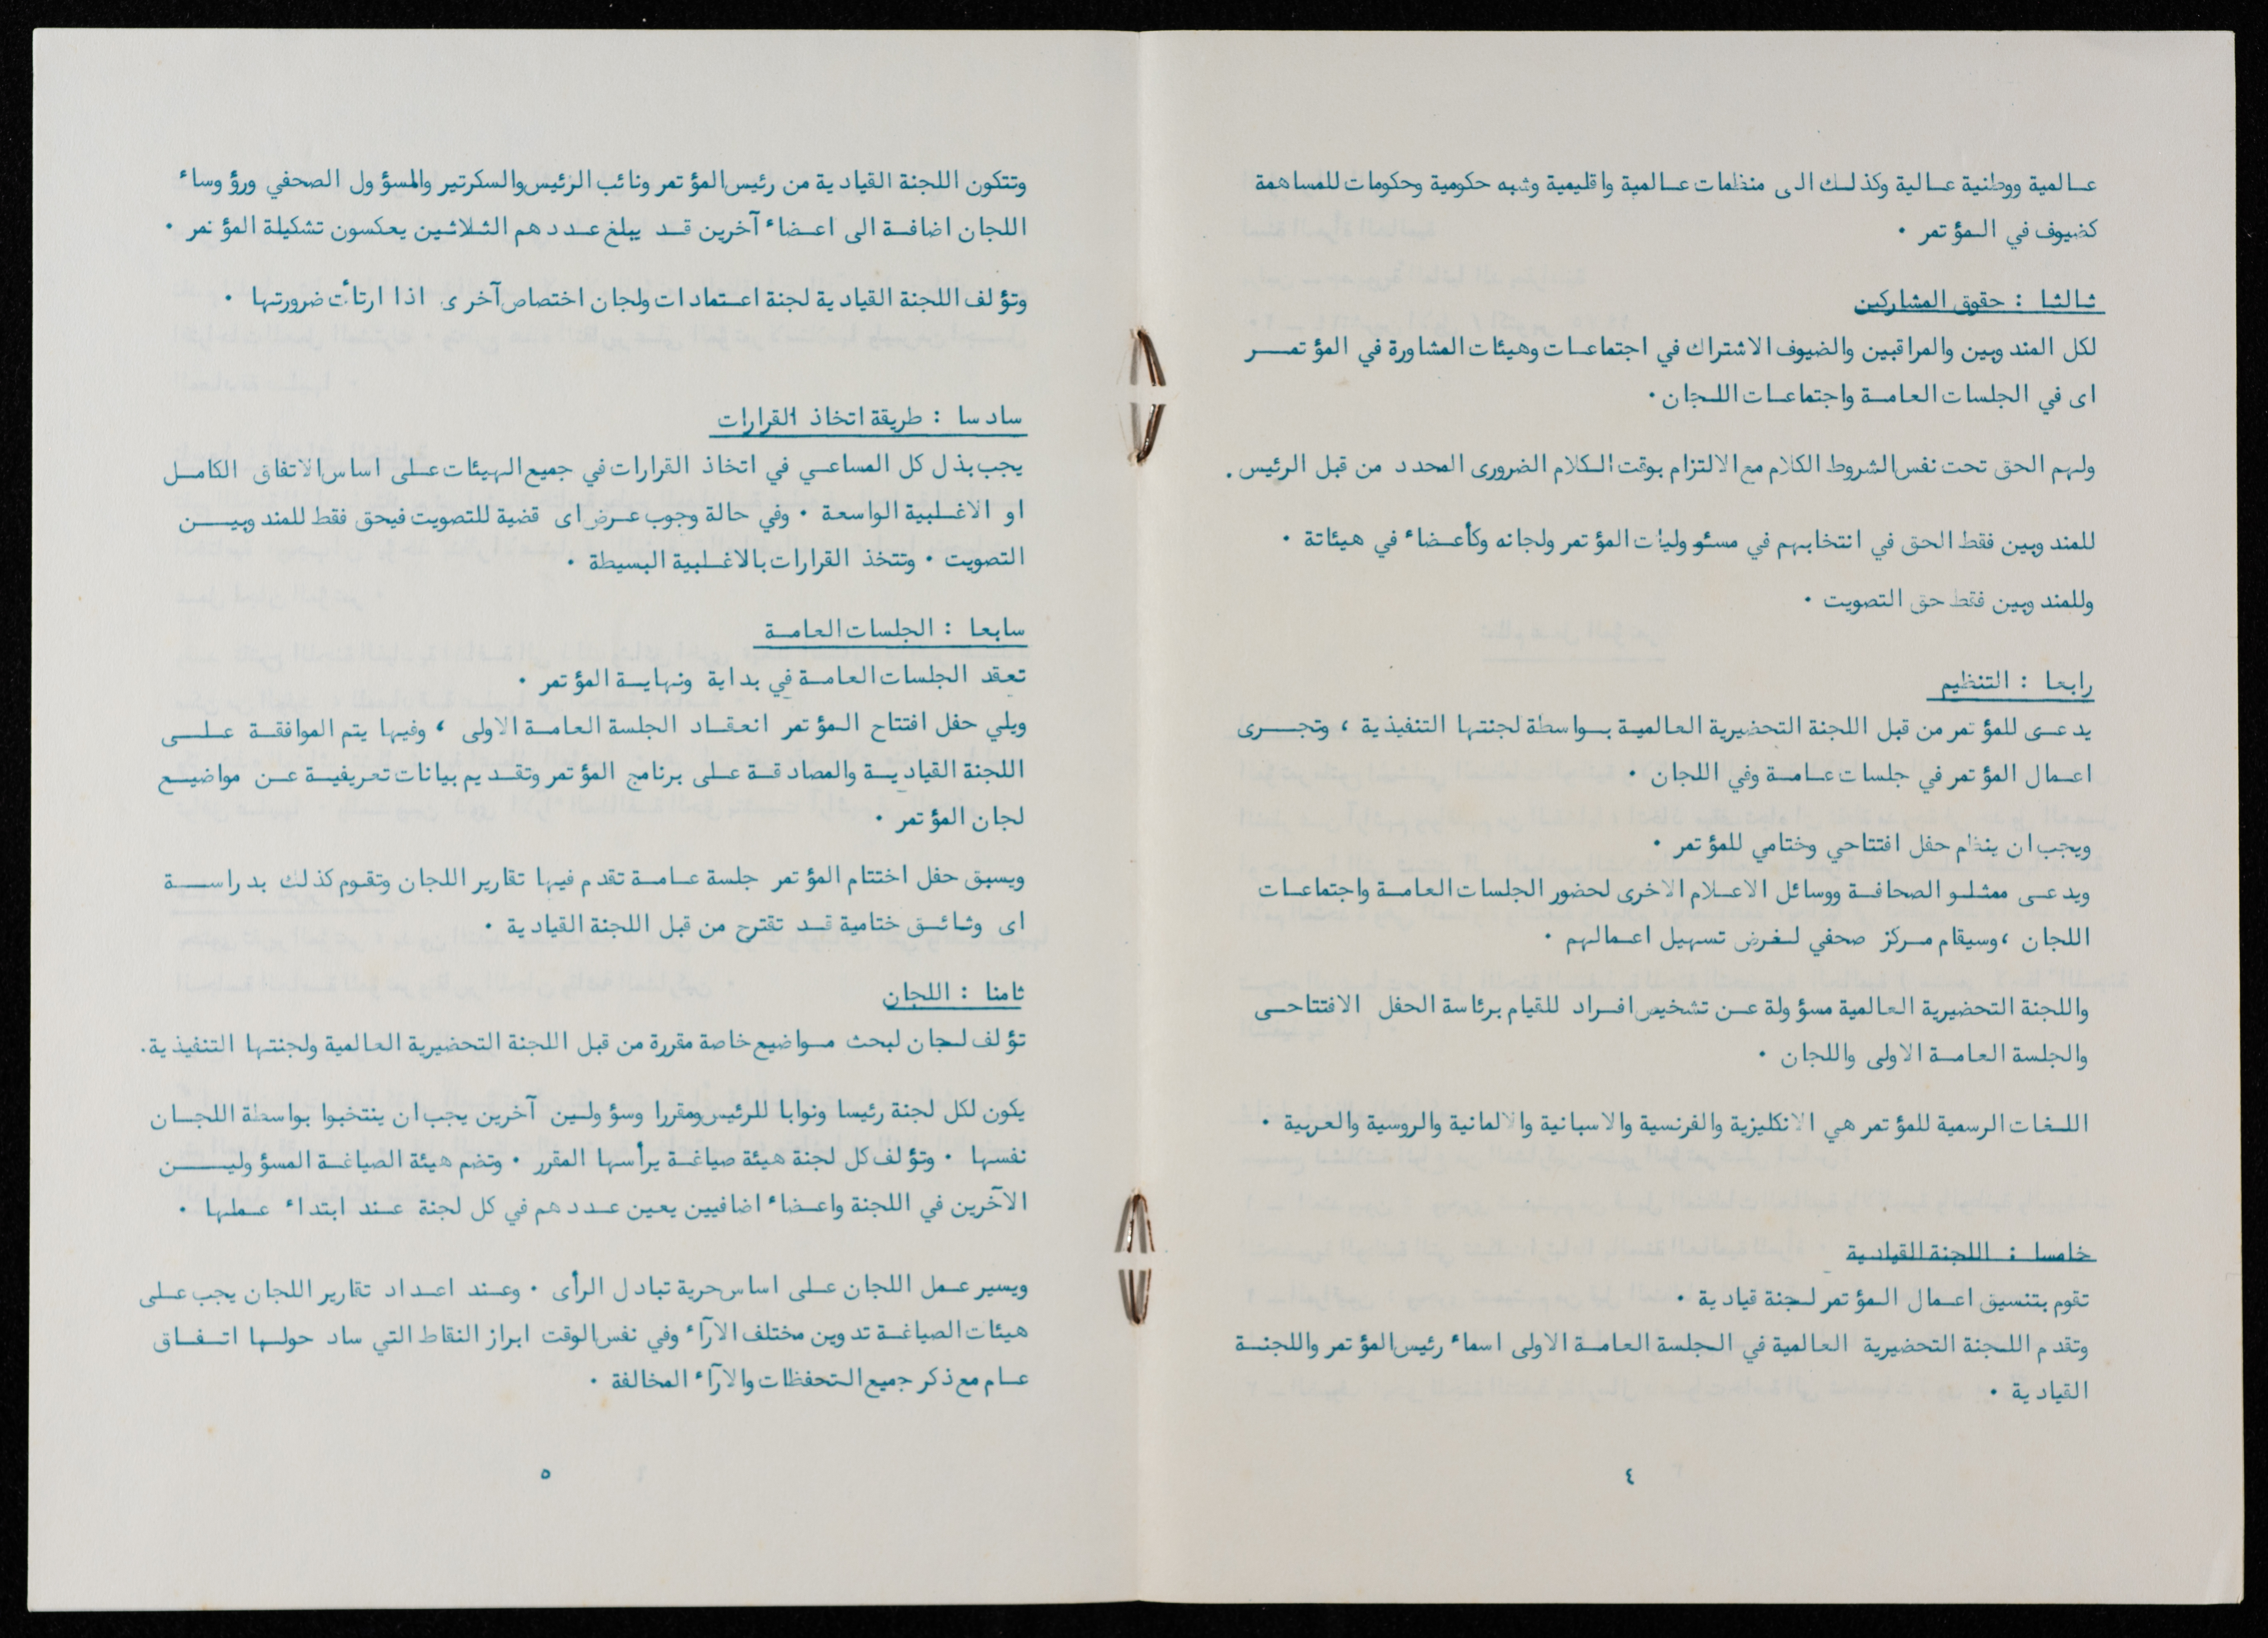 عالمية ووطنية عالية وكذلك الى منظمات عالمية واقليمية وشبه حكومية وحكومات للمساهمة
كضيوف في المؤتمر .
ثالثا : حقوق المشاركين
لكل المندوبين والمراقبين والضيوف الاشتراك في اجتماعات وهيئات المشاورة في المؤتمر
اى في الجلسات العامة واجتماعات اللجان .
ولهم الحق تحت نفس الشروط الكلام مع الالتزام بوقت الكلام الضرورى المحدد من قبل الرئيس .
للمندوبين فقط الحق في انتخابهم في مسئوليات المؤتمر ولجانه وكأعضاء في هيئاتة .
وللمندوبين فقط حق التصويت .
رابعا : التنظيم
يدعى للمؤتمر من قبل اللجنة التحضيرية العالمية بواسطة لجنتها التنفيذية ، وتجرى
اعمال المؤتمر في جلسات عامة وفي اللجان .
ويجب ان ينظم حفل افتتاحي وختامي للمؤتمر .
ويدعى ممثلو الصحافة ووسائل الاعلام الاخرى لحضور الجلسات العامة واجتماعات
اللجان ، وسيقام مركز صحفي لغرض تسهيل اعمالهم .
واللجنة التحضيرية العالمية مسؤولة عن تشخيص افراد للقيام برئاسة الحفل الافتتاحى
والجلسة العامة الاولى واللجان .
اللغات الرسمية للمؤتمر هي الانكليزية والفرنسية والاسبانية والالمانية والروسية والعربية .
خامسا : اللجنة القيادية
تقوم بتنسيق اعمال المؤتمر لجنة قيادية .
وتقدم اللجنة التحضيرية العالمية في الجلسة العامة الاولى اسماء رئيس المؤتمر واللجنة
القيادية .
٤
وتتكون اللجنة القيادية من رئيس المؤتمر ونائب الرئيس والسكرتير والمسؤول الصحفي ورؤوساء
اللجان اضافة الى اعضاء آخرين قد يبلغ عددهم الثلاثين يعكسون تشكيلة المؤتمر .
وتؤلف اللجنة القيادية لجنة اعتمادات ولجان اختصاص آخرى اذا ارتأت ضرورتها .
سادسا : طريقة اتخاذ القرارات
يجب بذل كل المساعي في اتخاذ القرارات في جميع الهيئات على اساس الاتفاق الكامل
او الاغلبية الواسعة . وفي حالة وجوب عرض اى قضية للتصويت فيحق فقط للمندوبين
التصويت . وتتخذ القرارات بالاغلبية البسيطة .
سابعا : الجلسات العامة
تعقد الجلسات العامة في بداية ونهاية المؤتمر .
ويلي حفل افتتاح المؤتمر انعقاد الجلسة العامة الاولى ، وفيها يتم الموافقة على
اللجنة القيادية والمصادقة على برنامج المؤتمر وتقديم بيانات تعريفية عن مواضيع
لجان المؤتمر .
ويسبق حفل اختتام المؤتمر جلسة عامة تقدم فيها تقارير اللجان وتقوم كذلك بدراسة
اى وثائق ختامية قد تقترح من قبل اللجنة القيادية .
ثامنا : اللجان
تؤلف لجان لبحث مواضيع خاصة مقررة من قبل اللجنة التحضيرية العالمية ولجنتها التنفيذية .
يكون لكل لجنة رئيسا ونوابا للرئيس ومقررا وسؤولين آخرين يجب ان ينتخبوا بواسطة اللجان
نفسها . وتؤلف كل لجنة هيئة صياغة يرأسها المقرر . وتضم هيئة الصياغة المسؤولين
الآخرين في اللجنة واعضاء اضافيين يعين عددهم في كل لجنة عند ابتداء عملها .
ويسير عمل اللجان على اساس حرية تبادل الرأى . وعند اعداد تقارير اللجان يجب على
هيئات الصياغة تدوين مختلف الآراء وفي نفس الوقت ابراز النقاط التي ساد حولها اتفاق
عام مع ذكر جميع التحفظات والآراء المخالفة .
٥